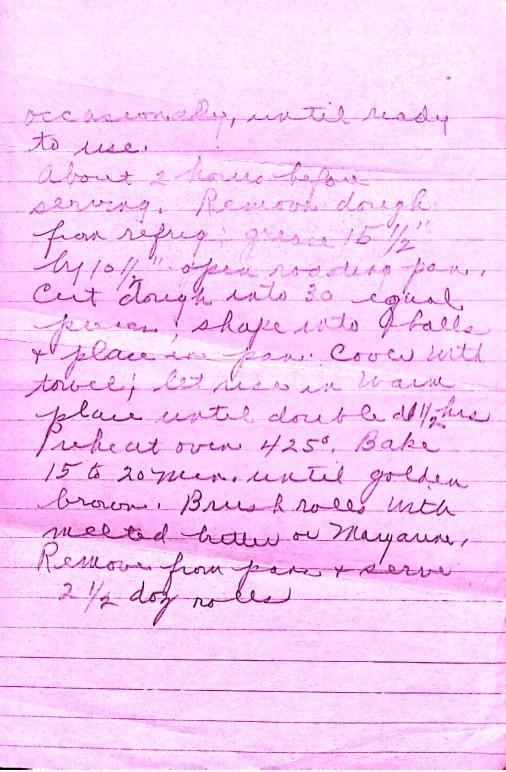 occasionally, until ready
to use.
About 2 hours before
serving. Remove dough
from refrig grease 15 1/2"
by 10 1/2" open roasting pan.
Cut dough into 30 equal
pieces; shape into balls
+ place in pan. Cover with
towel; let rise in warm
place until doubled 1 1/2 hrs
Preheat oven 425°. Bake
15 to 20 min. until golden
brown. Brush rolls with
melted butter or Margarine.
Remove from pans + serve
2 1/2 doz rolls